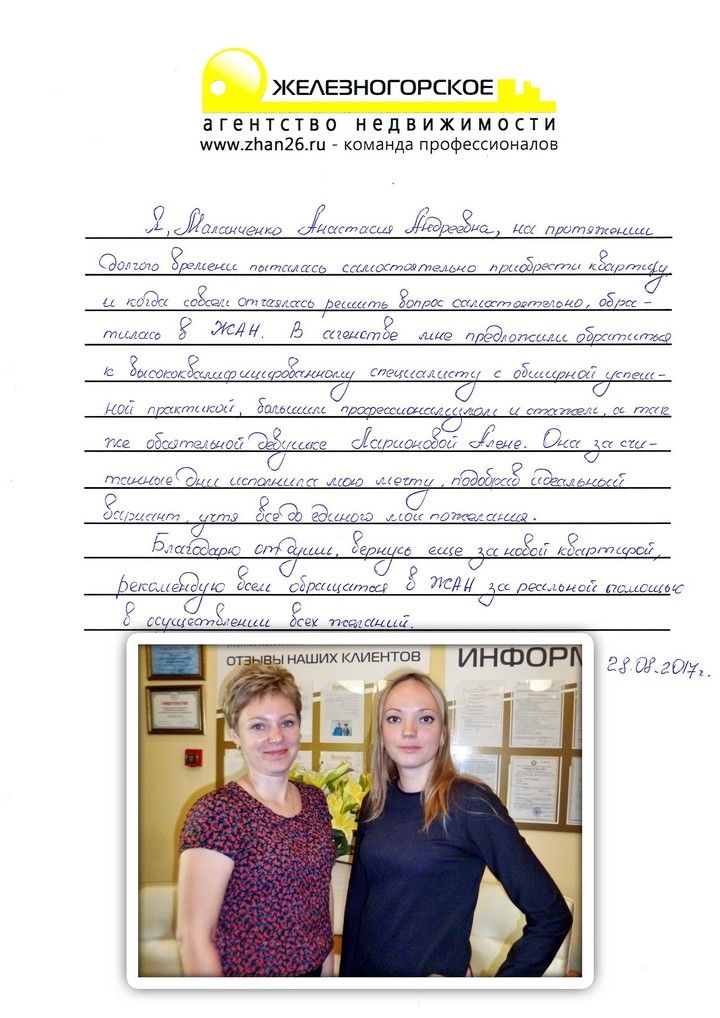 ЖЕЛЕЗНОГОРСКОЕ
агентство недвижимости
www.zhan26.ru - команда профессионалов
Я, Маланченко Анастасия Андреевна, на протяжении
долгого времени пыталась самостоятельно приобрести квартиру,
и когда совсем отчаялась решить вопрос самостоятельно, обра-
тилась в ЖАН. В агенстве мне предложили обратиться
к высококвалифицированному специалисту с обширной успеш-
ной практикой, большим профессионализмом и стажем, а так
же обаятельной девушке Ларионовой Алене. Она за счи-
танные дни исполнила мою мечту, подобрав идеальный
вариант, учтя все до единого мои пожелания.
Благодарю от души, вернусь еще за новой квартирой,
рекомендую всем обращаться в ЖАН за реальной помощью
в осуществлении всех желаний.
28.08.2017г.
ОТЗЫВЫ НАШИХ КЛИЕНТОВ
ИНФОРМ